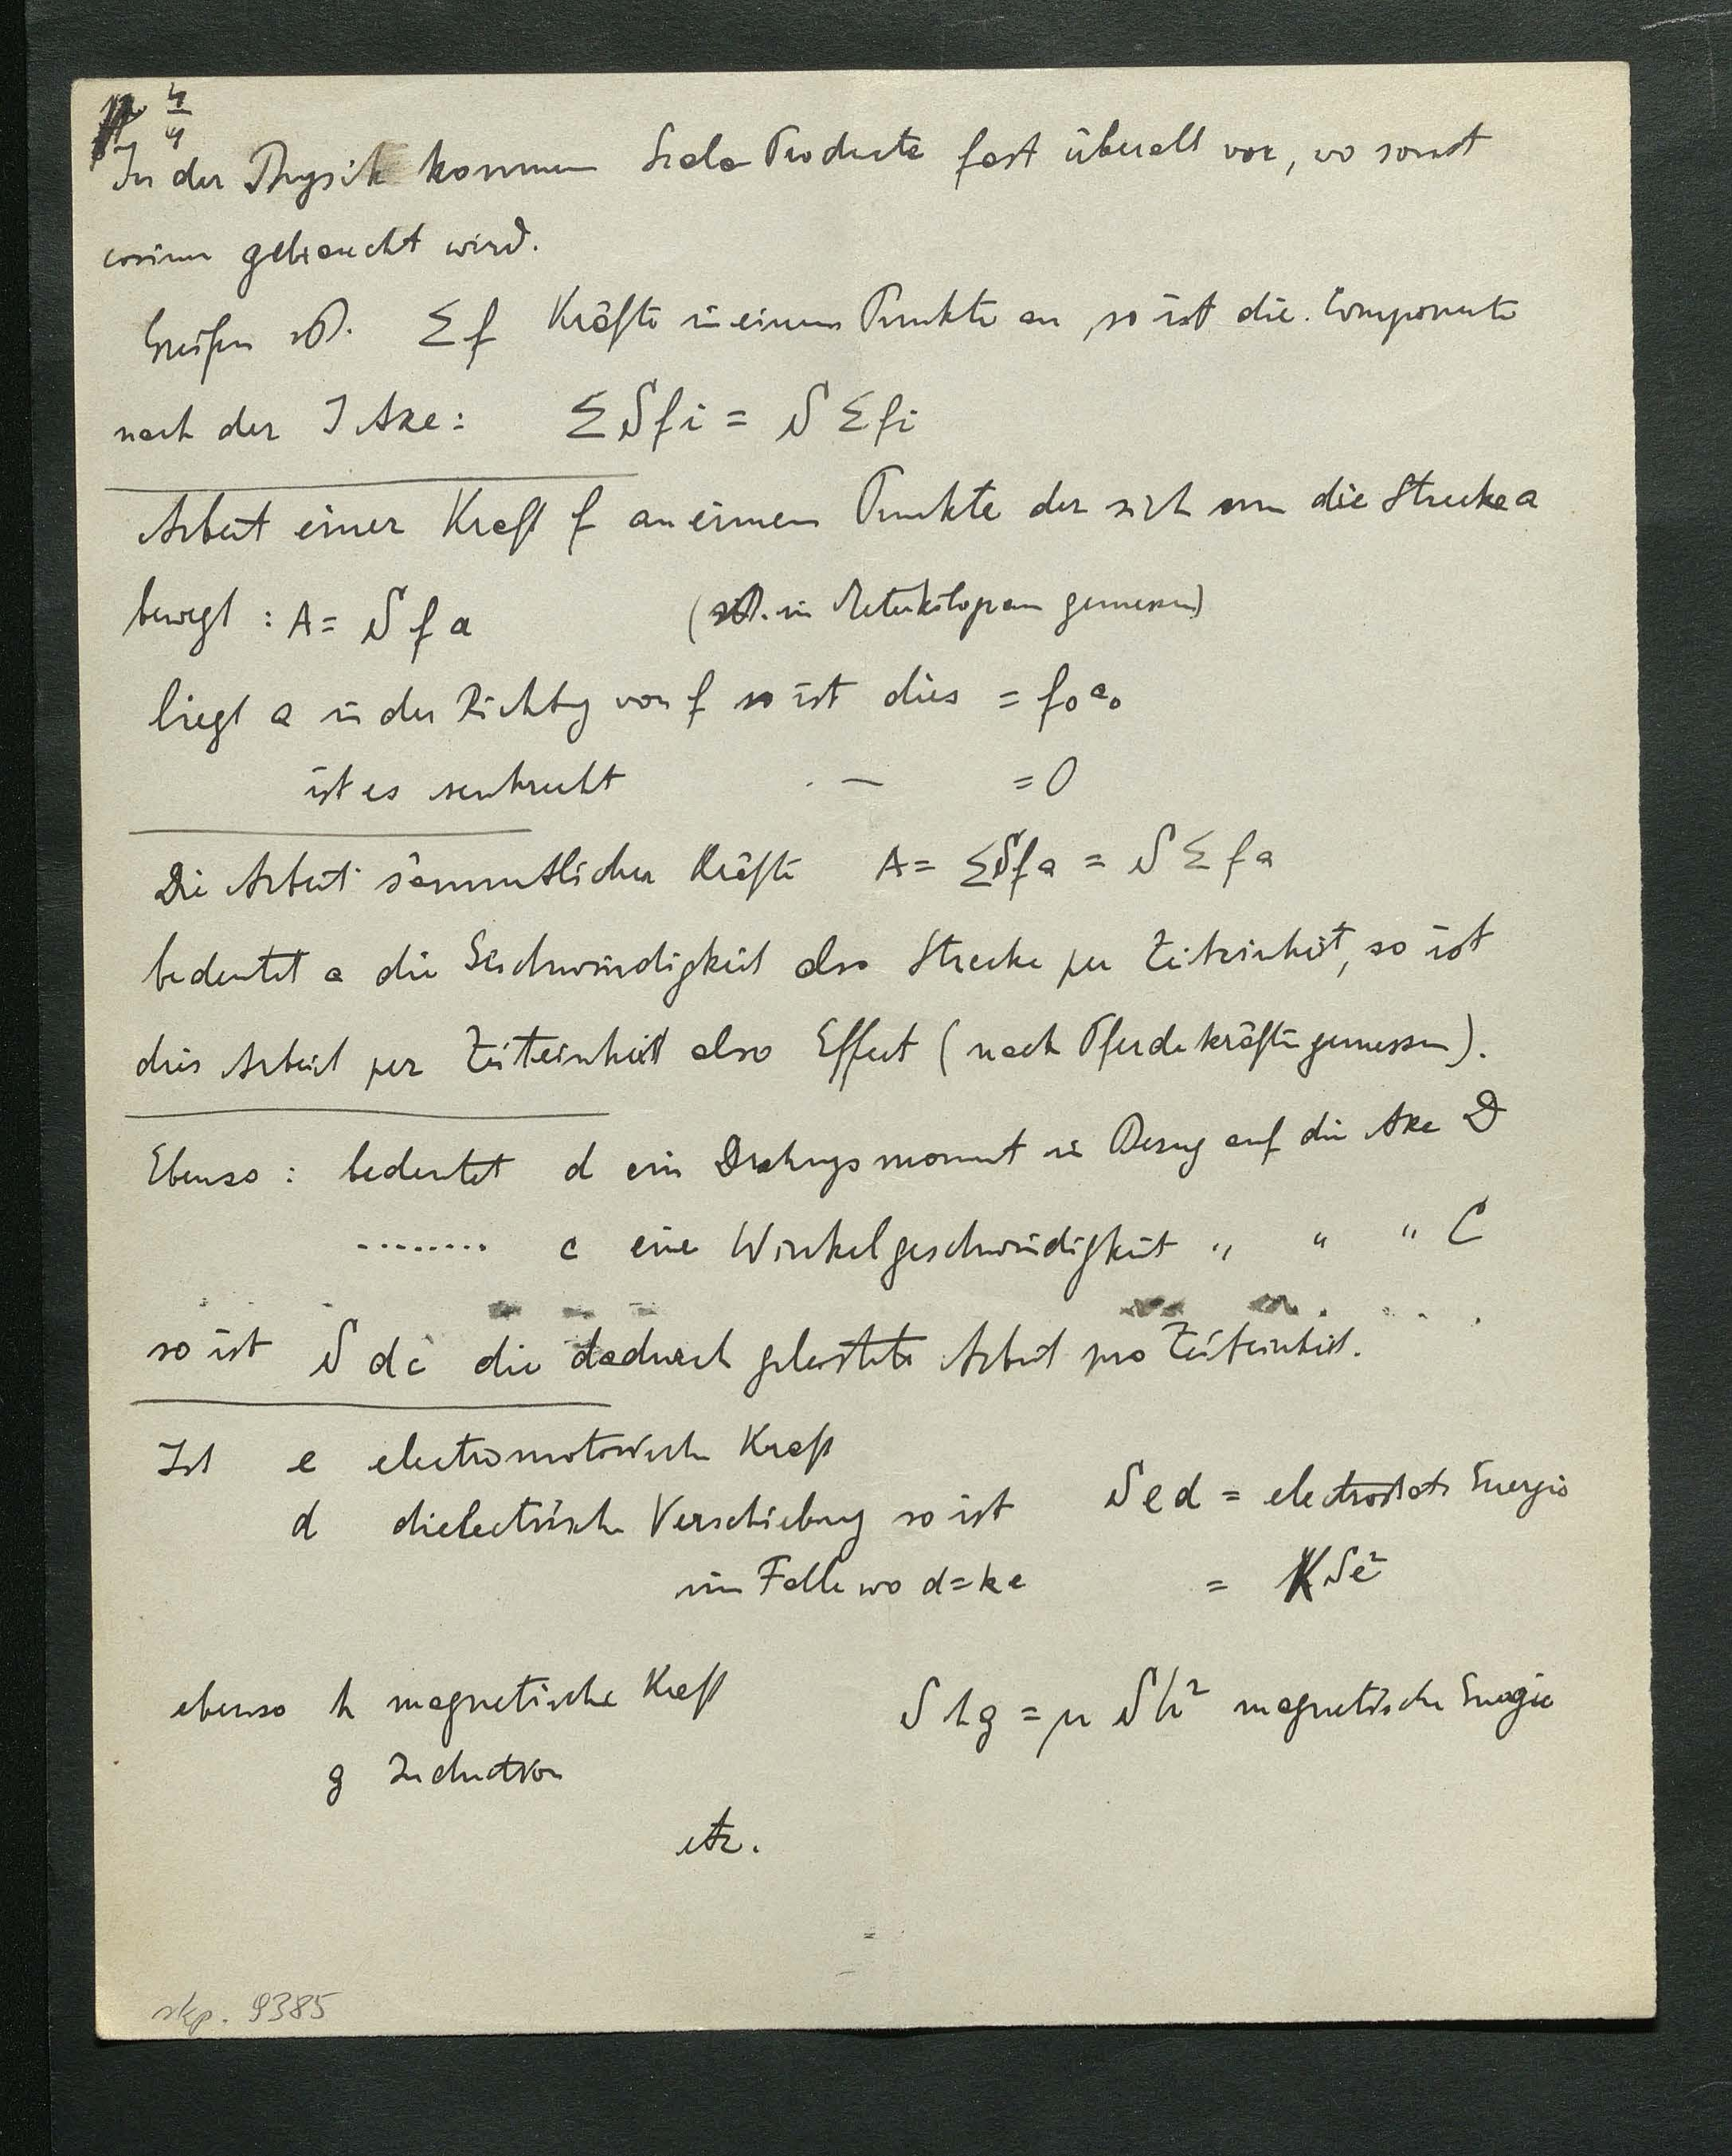 4/4
In der Physik kommen Scala Producte fast überall vor, wo sonst
cosinus gebraucht wird.
Greifen Σ f Kräfte in einem Punkte an, so ist die Componente
nach der I Axe: Σ S f i = S Σ f i
Arbeit einer Kraft f an einem Punkte der sich um die Strecke a
bewegt : A = S f a ( in Meterkilogram gemessen)
liegt a in der Richtg von f so ist dies = f₀ a₀
ist es senkrecht . — = 0
Die Arbeit sämmtlicher Kräfte A = Σ S f a = S Σ f a
bedeutet a die Geschwindigkeit also Strecke per Zeiteinheit, so ist
dies Arbeit per Zeiteinheit also Effect (nach Pferdekräften gemessen).
Ebenso : bedeutet d ein Drehungsmoment in Bezug auf die Axe D
........ c eine Winkelgeschwindigkeit " " " C
so ist S d c die dadurch geleistete Arbeit pro Zeiteinheit.
Ist e electromotorische Kraft
d dielectrische Verschiebung so ist S e d = electrostat. Energie
im Falle wo d = k e = K S e²
ebenso h magnetische Kraft S h g = μ S h² magnetische Energie
g Induction
etz.
rkp. 9385